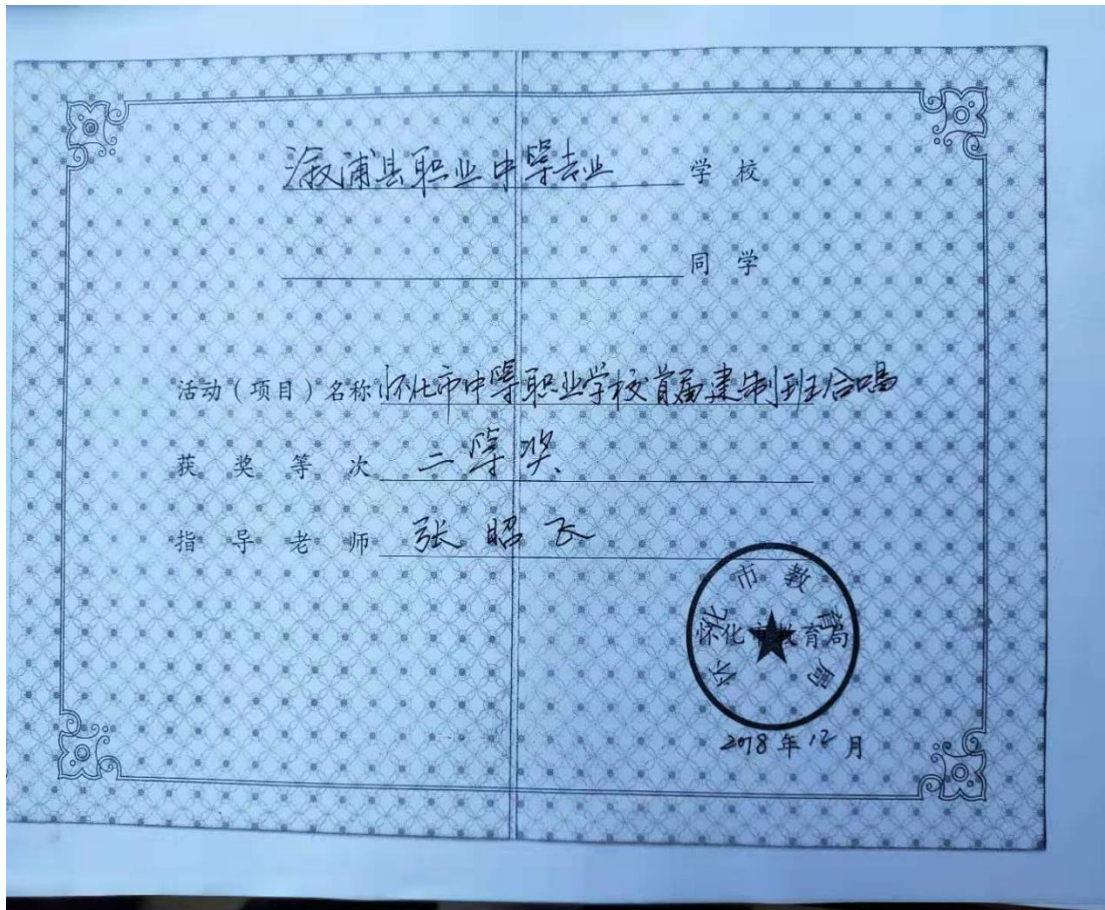 溆浦县职业中等专业 学校
同学
活动（项目）名称 怀化市中等职业学校首届建制班合唱
获奖等次 二等奖
指导老师 张昭飞
怀化市教育局
怀化市教育局
2018年12月